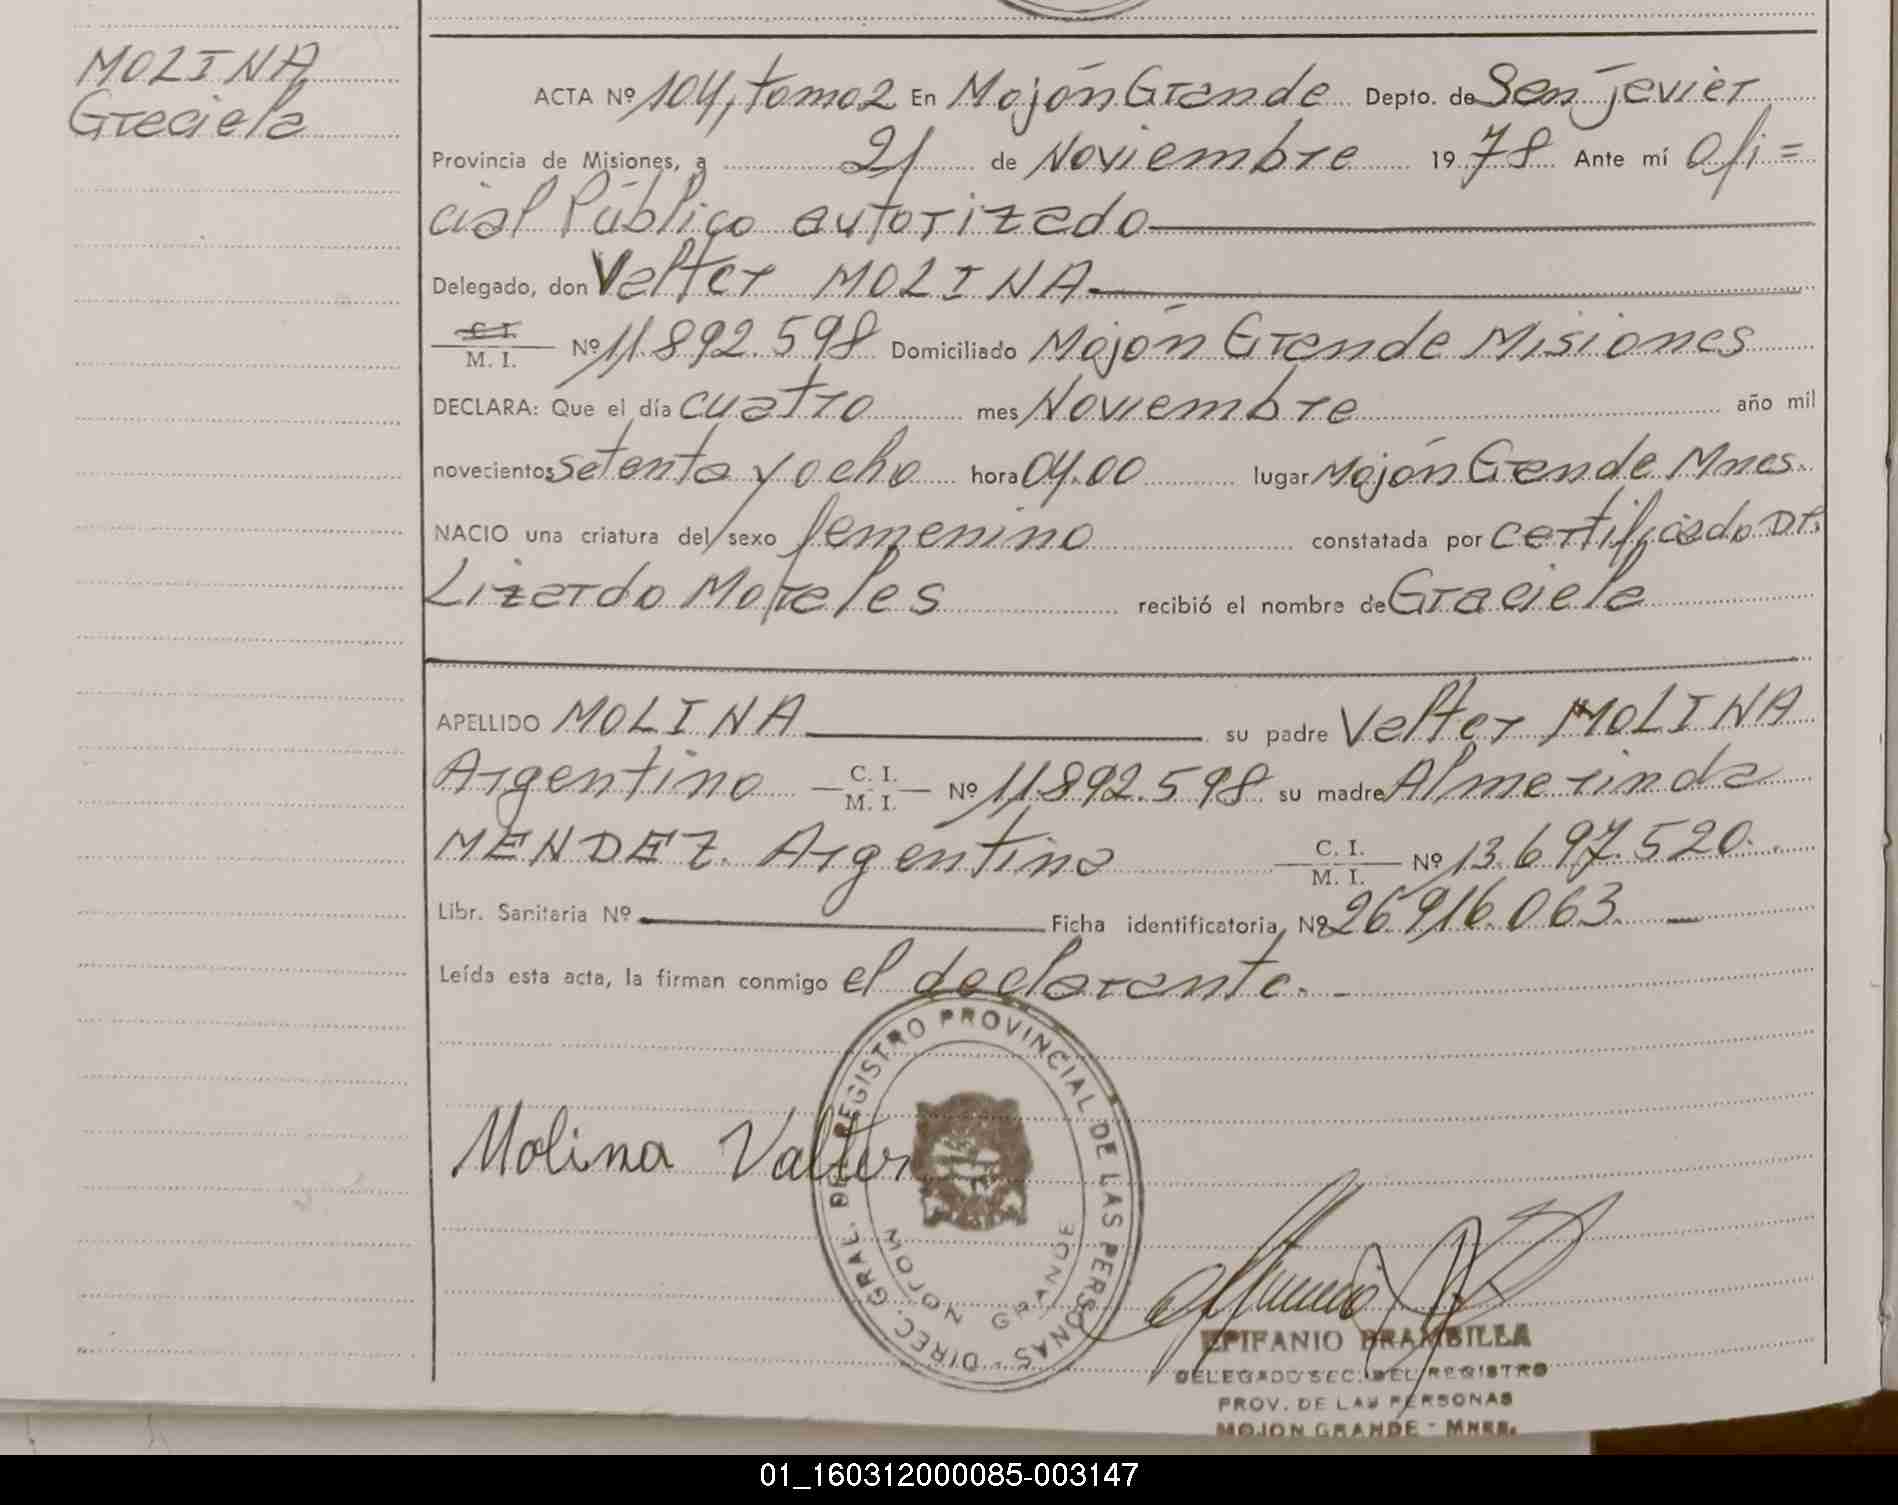 MOLINA
Graciela
ACTA Nº 104, tomo 2 En Mojón Grande Depto. de San Javier
Provincia de Misiones, a 21 de Noviembre 1978 Ante mí Ofi=
cial Público autorizado
Delegado, don Valter MOLINA
C. I.
M. I. Nº 11.892.598 Domiciliado Mojón Grande Misiones
DECLARA: Que el día cuatro mes Noviembre año mil
novecientos setenta y ocho hora 04.00 lugar Mojón Grande Mnes.
NACIO una criatura del sexo femenino constatada por certificado DP.
Lizardo Morales recibió el nombre de Graciela
APELLIDO MOLINA su padre Valter MOLINA
Argentino C. I. M. I. Nº 11.892.598 su madre Almerinda
MENDEZ. Argentina C. I. M. I. Nº 13.697.520.
Libr. Sanitaria Nº Ficha identificatoria Nº 26.916.063.
Leída esta acta, la firman conmigo el declarante.
DIREC. GRAL. DE REGISTRO PROVINCIAL DE LAS PERSONAS
MOJON GRANDE
Molina Valter
EPIFANIO BRAMBILLA
DELEGADO SEC. DEL REGISTRO
PROV. DE LAS PERSONAS
MOJON GRANDE - MNES.
01_160312000085-003147